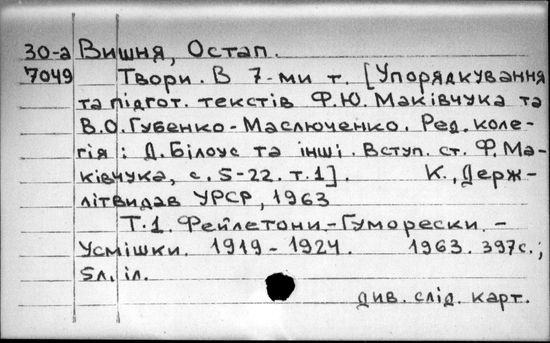 30-а Вишня, Остап.
7049 Твори. В 7-ми т. [Упорядкування
та підгот. текстів Ф.Ю. Маківчука та
В.О. Губенко-Маслюченко. Ред. коле-
гія: Д. Білоус та інші. Вступ. ст. Ф. Ма-
ківчука, с. 5-22. т.1]. К., Держ-
літвидав УРСР, 1963
Т.1. Фейлетони-Гуморески. -
Усмішки. 1919-1924. 1963. 397с.;
5л. іл.
див. слід. карт.